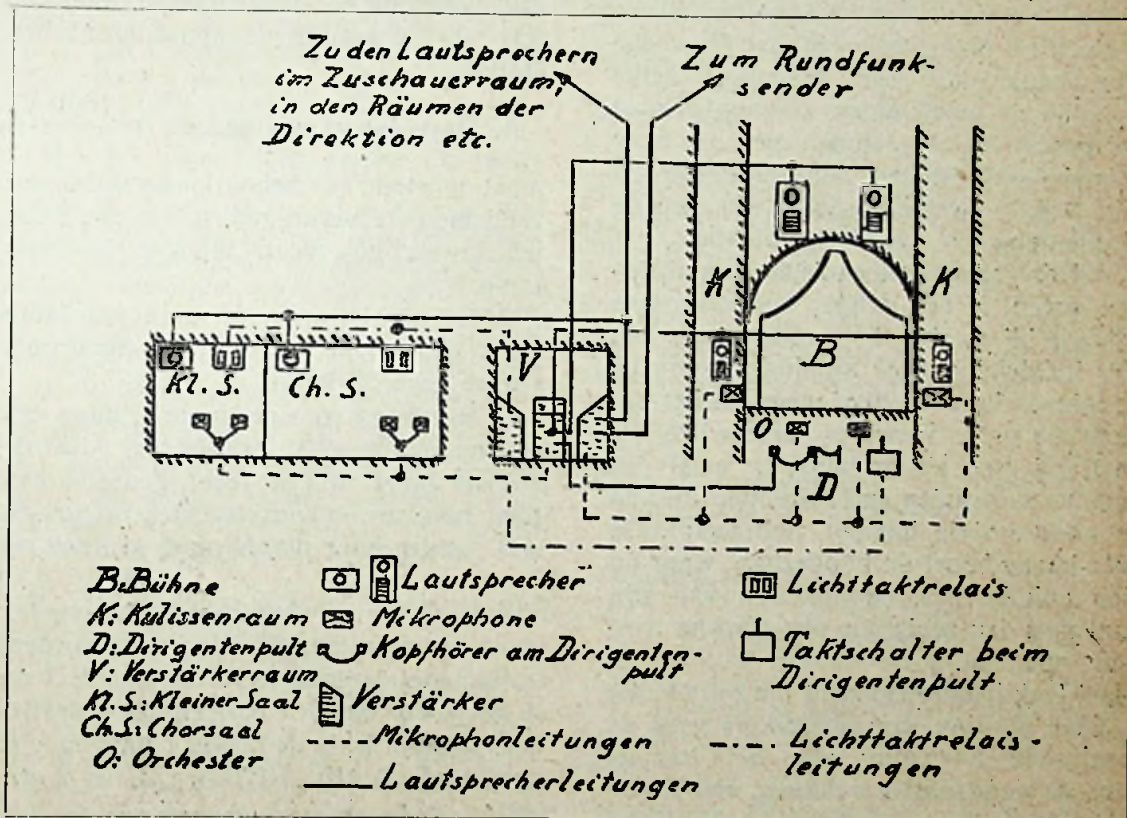 Zu den Lautsprechern
im Zuschauerraum,
in den Räumen der
Direktion etc.
Zum Rundfunk-
sender
K
K
B
V
Kl. S.
Ch. S.
O
D
B: Bühne
K: Kulissenraum
D: Dirigentenpult
V: Verstärkerraum
Kl. S.: Kleiner Saal
Ch. S.: Chorsaal
O: Orchester
Lautsprecher
Mikrophone
Kopfhörer am Dirigenten-
pult
Verstärker
Mikrophonleitungen
Lautsprecherleitungen
Lichttaktrelais
Taktschalter beim
Dirigentenpult
Lichttaktrelais-
leitungen